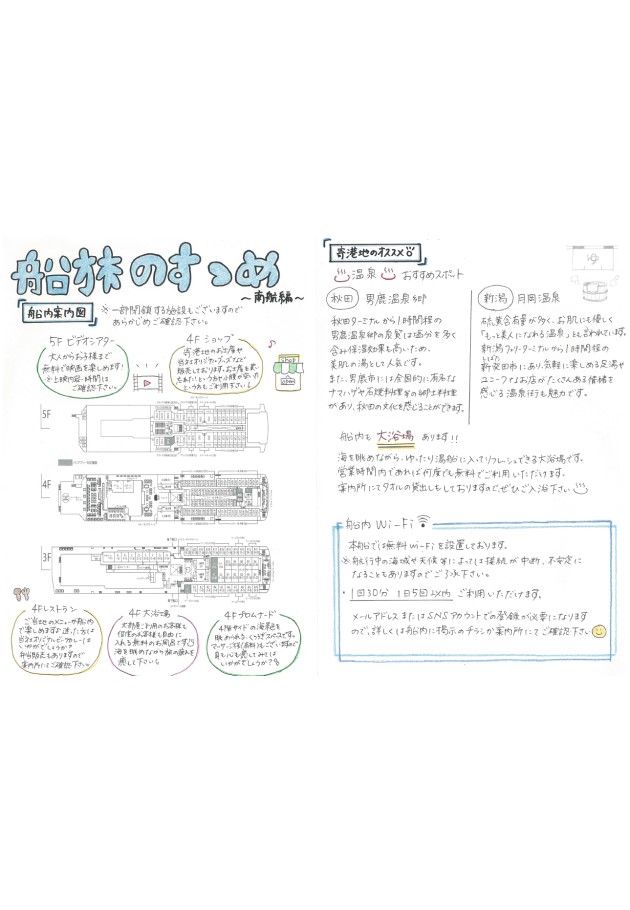 船旅のすゝめ
〜南航編〜
船内案内図
※一部閉鎖する施設もございますので
あらかじめご確認下さい。
5F ビデオシアター
大人からお子様まで
無料で映画を楽しめます!
※上映内容・時間は
ご確認下さい。
4F ショップ
寄港地のお土産や
当社オリジナルグッズなど
販売しております。お土産を買い
SHOP
OPEN
5F
4F
3F
4Fレストラン
ご当地のメニューが船内
で楽しめます♪迷った方は
当社オリジナルビーフカレーは
いかがでしょうか?
弁当販売もありますので
案内所にてご確認下さい。
4F 大浴場
入れる無料のお風呂です
海を眺めながら旅の疲れを
癒して下さい
4Fプロムナード
4階サイドの海景色を
眺められる、くつろぎスペースです。
マッサージ機(有料)もございますので
身も心も癒してみては
いかがでしょうか?
寄港地のオススメ
温泉 おすすめスポット
秋田 男鹿温泉郷
秋田ターミナルから1時間程の
男鹿温泉郷の泉質は塩分を多く
含み保湿効果も高いため、
美肌の湯として人気です。
また、男鹿市には全国的に有名な
ナマハゲや石焼料理等の郷土料理
があり、秋田の文化を感じることができます。
新潟 月岡温泉
硫黄含有量が多く、お肌にも優しく
「もっと美人になれる温泉」とも言われています。
新潟フェリーターミナルから1時間程の
しばた
新発田市にあり、気軽に楽しめる足湯や
ユニークなお店がたくさんある情緒を
感じる温泉街も魅力です。
船内も 大浴場 あります!!
海を眺めながら、ゆったり湯船に入ってリフレッシュできる大浴場です。
営業時間内であれば何度でも無料でご利用いただけます。
案内所にてタオルの貸出しもしておりますので、ぜひご入浴下さい
船内 Wi-Fi
本船では無料Wi-Fiを設置しております。
※航行中の海域や天候等によっては接続が中断、不安定に
なることもありますのでご了承下さい。
・1回30分 1日5回以内 ご利用いただけます。
メールアドレスまたはSNSアカウントでの登録が必要になります
ので、詳しくは船内に掲示のチラシか案内所にてご確認下さい